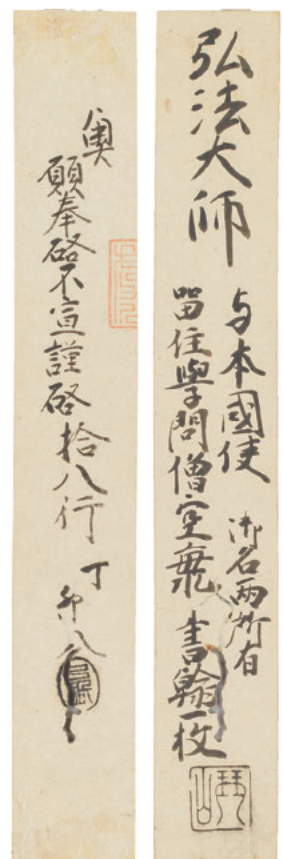 弘法大師
与本國使
留住學問僧室
御名両所有
書翰一枚
奥
願奉啓不宣謹啓
拾八行
丁
卯八
琴山